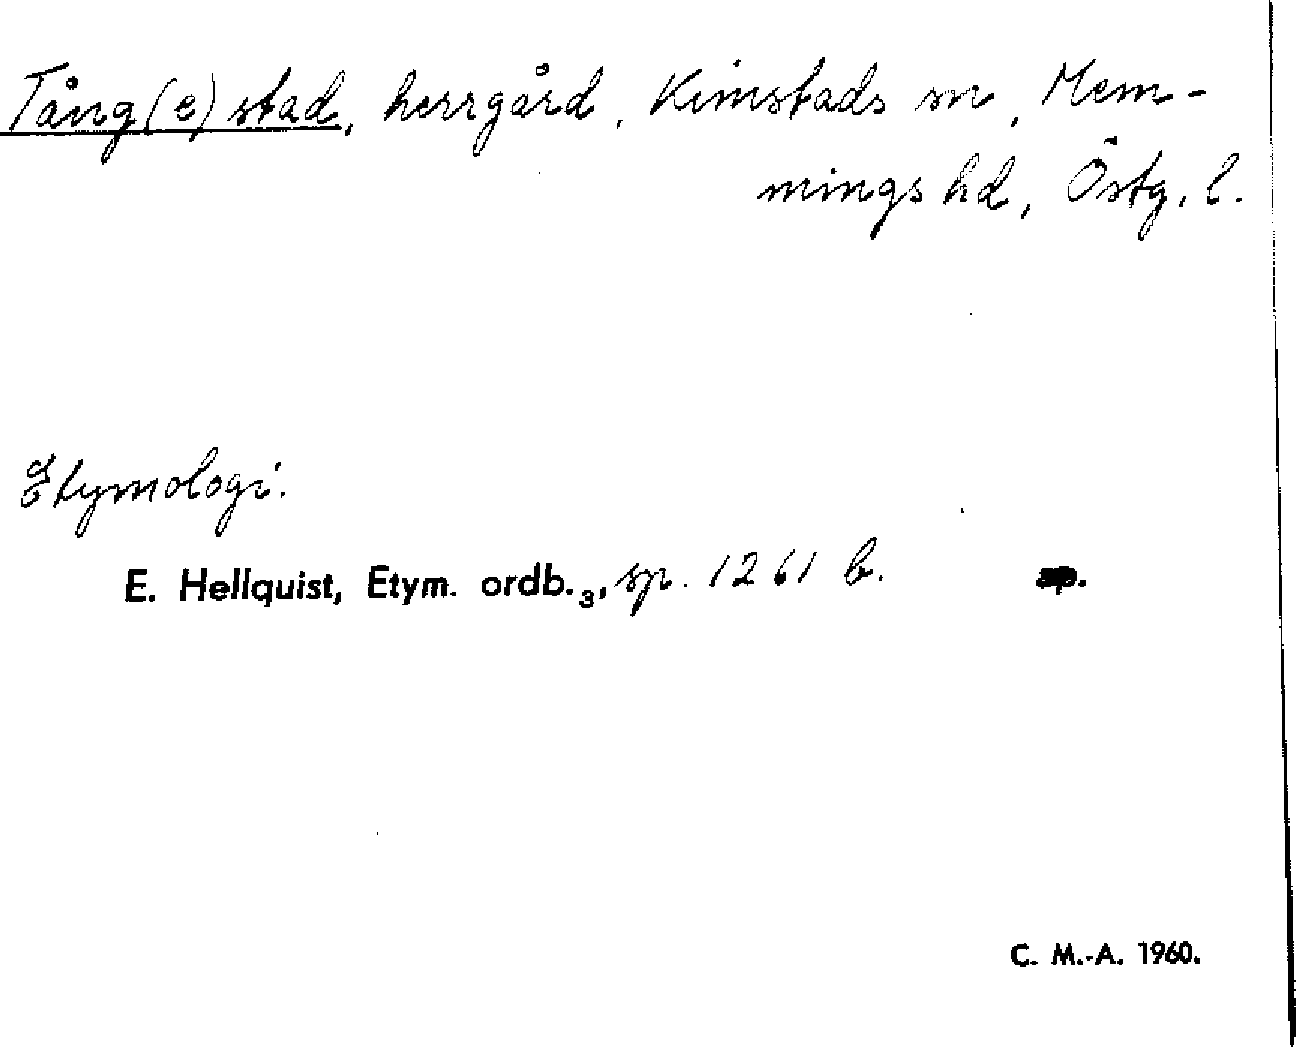 Tång(e)stad, herrgård, Kimstads sn, Mem-
mings hd, Östg. l.
Etymologi.
E. Hellquist, Etym. ordb.3, sp. 1261 b. sp.
C. M.-A. 1960.